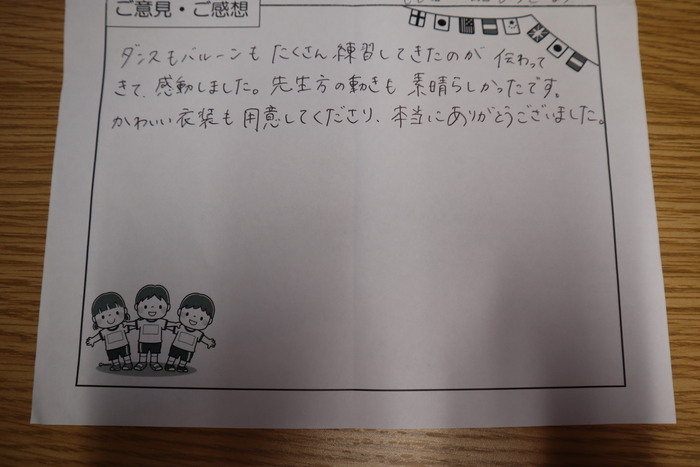 ご意見・ご感想
ダンスもバルーンもたくさん練習してきたのが伝わって
きて、感動しました。先生方の動きも素晴らしかったです。
かわいい衣装も用意してくださり、本当にありがとうございました。